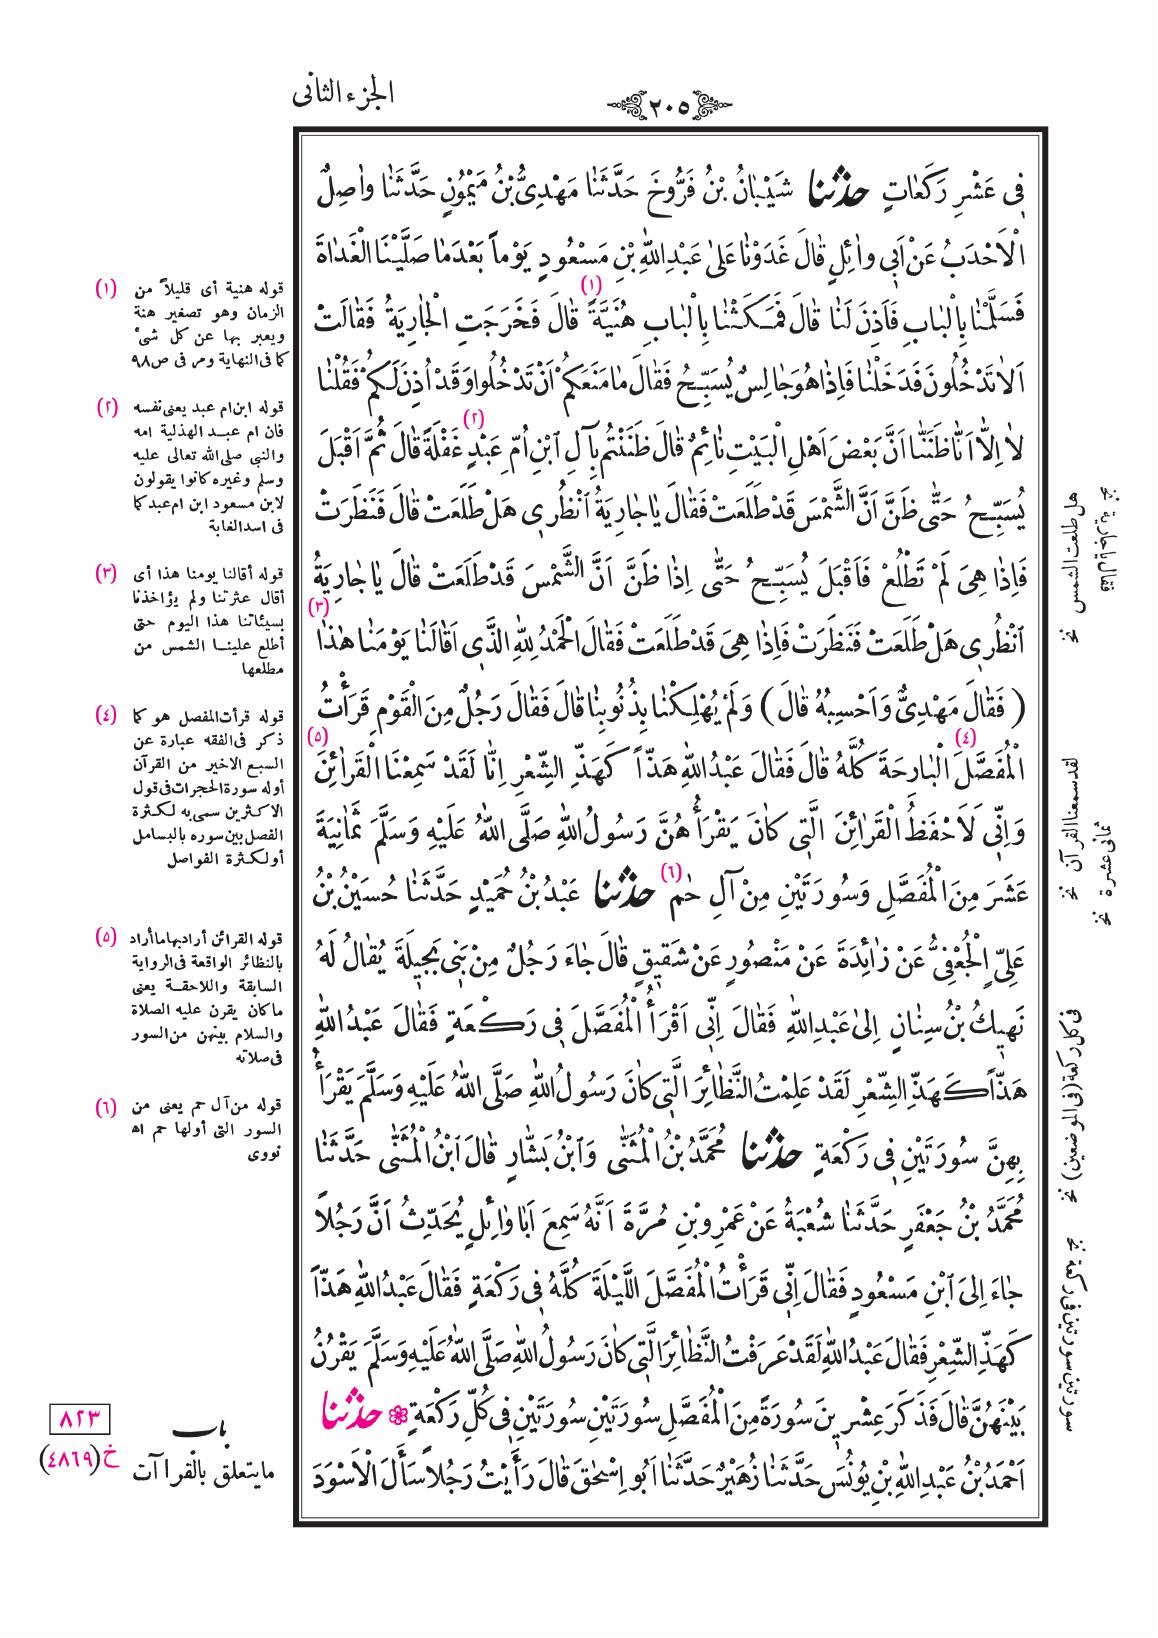 الجزء الثانى
٢٠٥
فِى عَشْرِ رَكَعَاتٍ حَدَّثَنَا شَيْبَانُ بْنُ فَرُّوخَ حَدَّثَنَا مَهْدِىُّ بْنُ مَيْمُونٍ حَدَّثَنَا وَاصِلٌ
الْاَحْدَبُ عَنْ اَبِى وَائِلٍ قَالَ غَدَوْنَا عَلىٰ عَبْدِ اللهِ بْنِ مَسْعُودٍ يَوْماً بَعْدَمَا صَلَّيْنَا الْغَدَاةَ
فَسَلَّمْنَا بِالْبَابِ فَاَذِنَ لَنَا قَالَ فَمَكَثْنَا بِالْبَابِ هُنَيَّةً (١) قَالَ فَخَرَجَتِ الْجَارِيَةُ فَقَالَتْ
اَلَا تَدْخُلُونَ فَدَخَلْنَا فَاِذَا هُوَ جَالِسٌ يُسَبِّحُ فَقَالَ مَا مَنَعَكُمْ اَنْ تَدْخُلُوا وَقَدْ اُذِنَ لَكُمْ فَقُلْنَا
لَا اِلَّا اَنَّا ظَنَنَّا اَنَّ بَعْضَ اَهْلِ الْبَيْتِ نَائِمٌ قَالَ ظَنَنْتُمْ بِآلِ ابْنِ اُمِّ عَبْدٍ (٢) غَفْلَةً قَالَ ثُمَّ اَقْبَلَ
يُسَبِّحُ حَتّٰى ظَنَّ اَنَّ الشَّمْسَ قَدْ طَلَعَتْ فَقَالَ يَا جَارِيَةُ انْظُرِى هَلْ طَلَعَتْ قَالَ فَنَظَرَتْ
فَاِذَا هِىَ لَمْ تَطْلُعْ فَاَقْبَلَ يُسَبِّحُ حَتّٰى اِذَا ظَنَّ اَنَّ الشَّمْسَ قَدْ طَلَعَتْ قَالَ يَا جَارِيَةُ
انْظُرِى هَلْ طَلَعَتْ فَنَظَرَتْ فَاِذَا هِىَ قَدْ طَلَعَتْ فَقَالَ الْحَمْدُ لِلهِ الَّذِى اَقَالَنَا يَوْمَنَا هٰذَا (٣)
( فَقَالَ مَهْدِىٌّ وَاَحْسِبُهُ قَالَ ) وَلَمْ يُهْلِكْنَا بِذُنُوبِنَا قَالَ فَقَالَ رَجُلٌ مِنَ الْقَوْمِ قَرَأْتُ
الْمُفَصَّلَ (٤) الْبَارِحَةَ كُلَّهُ قَالَ فَقَالَ عَبْدُ اللهِ هَذّاً كَهَذِّ الشِّعْرِ اِنَّا لَقَدْ سَمِعْنَا الْقَرَائِنَ (٥)
وَاِنِّى لَاَحْفَظُ الْقَرَائِنَ الَّتِى كَانَ يَقْرَأُهُنَّ رَسُولُ اللهِ صَلَّى اللهُ عَلَيْهِ وَسَلَّمَ ثَمَانِيَةَ
عَشَرَ مِنَ الْمُفَصَّلِ وَسُورَتَيْنِ مِنْ آلِ حٰم (٦) حَدَّثَنَا عَبْدُ بْنُ حُمَيْدٍ حَدَّثَنَا حُسَيْنُ بْنُ
عَلِىٍّ الْجُعْفِىُّ عَنْ زَائِدَةَ عَنْ مَنْصُورٍ عَنْ شَقِيقٍ قَالَ جَاءَ رَجُلٌ مِنْ بَنِى بَجِيلَةَ يُقَالُ لَهُ
نَهِيكُ بْنُ سِنَانٍ اِلىٰ عَبْدِ اللهِ فَقَالَ اِنِّى اَقْرَأُ الْمُفَصَّلَ فِى رَكْعَةٍ فَقَالَ عَبْدُ اللهِ
هَذّاً كَهَذِّ الشِّعْرِ لَقَدْ عَلِمْتُ النَّظَائِرَ الَّتِى كَانَ رَسُولُ اللهِ صَلَّى اللهُ عَلَيْهِ وَسَلَّمَ يَقْرَأُ
بِهِنَّ سُورَتَيْنِ فِى رَكْعَةٍ حَدَّثَنَا مُحَمَّدُ بْنُ الْمُثَنّٰى وَابْنُ بَشَّارٍ قَالَ ابْنُ الْمُثَنّٰى حَدَّثَنَا
مُحَمَّدُ بْنُ جَعْفَرٍ حَدَّثَنَا شُعْبَةُ عَنْ عَمْرِو بْنِ مُرَّةَ اَنَّهُ سَمِعَ اَبَا وَائِلٍ يُحَدِّثُ اَنَّ رَجُلاً
جَاءَ اِلىَ ابْنِ مَسْعُودٍ فَقَالَ اِنِّى قَرَأْتُ الْمُفَصَّلَ اللَّيْلَةَ كُلَّهُ فِى رَكْعَةٍ فَقَالَ عَبْدُ اللهِ هَذّاً
كَهَذِّ الشِّعْرِ فَقَالَ عَبْدُ اللهِ لَقَدْ عَرَفْتُ النَّظَائِرَ الَّتِى كَانَ رَسُولُ اللهِ صَلَّى اللهُ عَلَيْهِ وَسَلَّمَ يَقْرُنُ
بَيْنَهُنَّ قَالَ فَذَكَرَ عِشْرِينَ سُورَةً مِنَ الْمُفَصَّلِ سُورَتَيْنِ سُورَتَيْنِ فِى كُلِّ رَكْعَةٍ ❁ حَدَّثَنَا
اَحْمَدُ بْنُ عَبْدِ اللهِ بْنِ يُونُسَ حَدَّثَنَا زُهَيْرٌ حَدَّثَنَا اَبُو اِسْحٰقَ قَالَ رَأَيْتُ رَجُلاً سَأَلَ الْاَسْوَدَ
(١) قوله هنية أى قليلاً من
الزمان وهو تصغير هنة
ويعبر بها عن كل شىٔ
كما فى النهاية ومر فى ص٩٨
(٢) قوله ابن ام عبد يعنى نفسه
فان ام عبد الهذلية امه
والنبى صلى الله تعالى عليه
وسلم وغيره كانوا يقولون
لابن مسعود ابن ام عبد كما
فى اسد الغابة
(٣) قوله أقالنا يومنا هذا أى
أقال عثرتنا ولم يؤاخذنا
بسيئاتنا هذا اليوم حتى
أطلع علينا الشمس من
مطلعها
(٤) قوله قرأت المفصل هو كما
ذكر فى الفقه عبارة عن
السبع الاخير من القرآن
أوله سورة الحجرات فى قول
الاكثرين سمى به لكثرة
الفصل بين سوره بالبسامل
أو لكثرة الفواصل
(٥) قوله القرائن أراد بها ما أراد
بالنظائر الواقعة فى الرواية
السابقة واللاحقة يعنى
ما كان يقرن عليه الصلاة
والسلام بينهن من السور
فى صلاته
(٦) قوله من آل حم يعنى من
السور التى أولها حم اه
نووى
باب
ما يتعلق بالقراآت
٨٢٣
خ (٤٨٦٩)
فقال يا جارية نخ
هل طلعت الشمس نخ
لقد سمعنا القرآن نخ
ثمانى عشرة نخ
فى كل ركعة (فى الموضعين) نخ
سورتين سورتين فى ركعة نخ